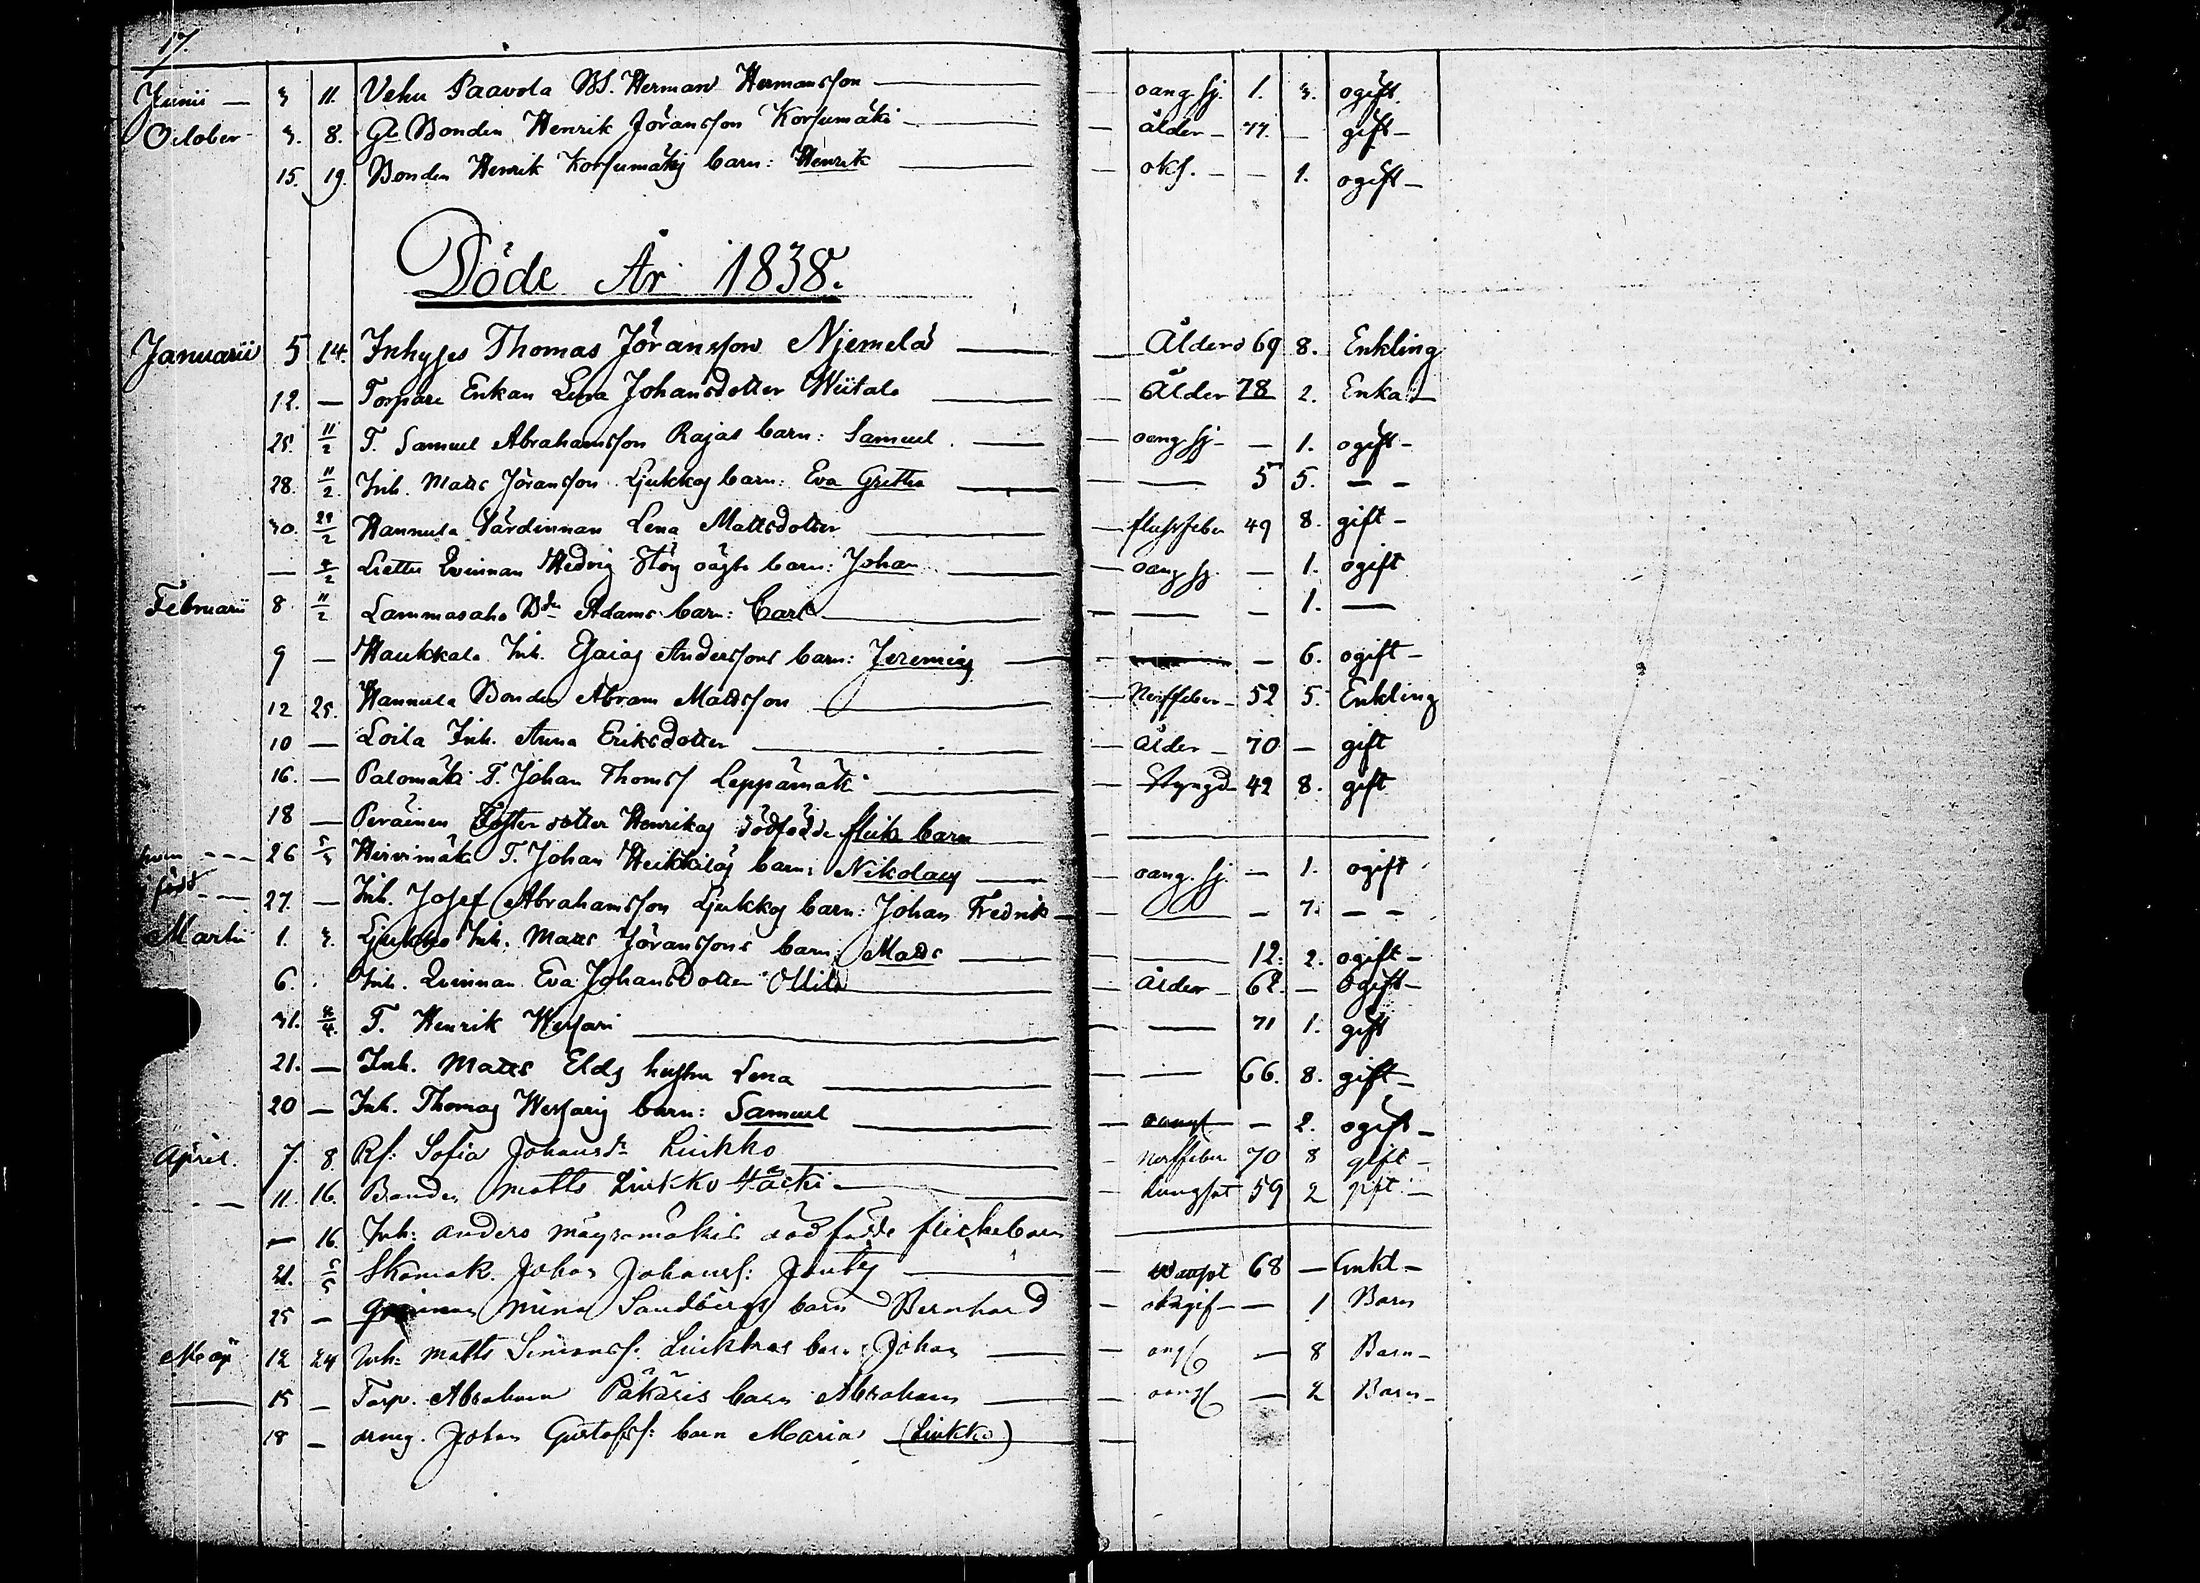 17.
Junii — 3 11. Vehu Paavola Herman Hermansson — oang. sj. 1. 3. ogift.
October 3. 8. Gl Bonden Henrik Jöransson Korsumäki — ålder — 77. — gift —
15. 19. Bonden Henrik Korsumäkij barn: Henrik — okj. — — 1. ogift —
Döde År 1838.
Januarii 5 14. Inhyses Thomas Jöransson Njemelä — Ålder 69 8. Enkling
12. — Torpare Enkan Lena Johansdotter Wiitala — Ålder 78 2. Enka —
25. 11/2 T. Samuel Abrahamsson Rajas barn: Samuel. — oang sj — — 1. ogift —
28. 11/2. Inh. Matts Jöransson Ljukkos barn: Eva Gretha — — 5 5. — —
30. 29/2 Hannula Värdinnan Lena Mattsdotter — flussfeber 49 8. gift —
— 4/2 Qvinnan Hedvig oägta barn: Johan — oang sj. — 1. ogift
Februarii 8 11/2 Lammasaho Bdn Adams barn: Carl — — — 1. —
9 — Haukkala Inh. Esaias Anderssons barn: Jeremias — — 6. ogift —
12 25. Hannula Bonden Abram Mattsson — Nerffeber — 52 5. Enkling
10 — Loila Inh. Anna Eriksdotter — ålder — 70 — gift
16. — Palomäki T. Johan Thomss Leppämäki — Styngd — 42 8. gift
18 — Peräinen dotter Henrikas dödfödde flick barn —
26 5/3 Hirvimäki T. Johan Heikkiläs barn: Nikolaus — oang. sj. — 1. ogift
född — 27. — Inh. Josef Abrahamsson Ljukkos barn: Johan Fredrik — — — 7. — —
Martii 1. 3. Ljukko Inh. Matts Jöranssons barn: Matts — — 12. 2. ogift —
6. Inh. Qvinnan Eva Johansdotter Ollila — ålder — 62. — Ogift —
31. 8/4. T. Henrik Wessari — — 71 1. gift
21. — Inh. Matts Elds hustru Lena — — 66. 8. gift —
20 — Inh. Thomas Wessaris barn: Samuel — — 2. ogift —
April. 7. 8 Sofia Johansdr Liukko — nerffeber 70 8 gift —
11. 16. Bonden Matts Liukko — lungsot 59 2 gift —
— 16. Inh: Anders Mäyramäkis dödfödde flickebarn —
21. 5/5 Skomak. Johan Johanss: — 68 — Enkl —
25 — Qvinnan Mina Sandbergs barn Bernhard — — 1 Barn
Maji 12 24 Inh: Matts Simonss: Liukkos barn Johan — — 8 Barn —
15 — Torp. Abraham Päkäris barn Abraham — — 2 Barn —
18 — dreng. Johan Gustafss: barn Maria (Liukko) —